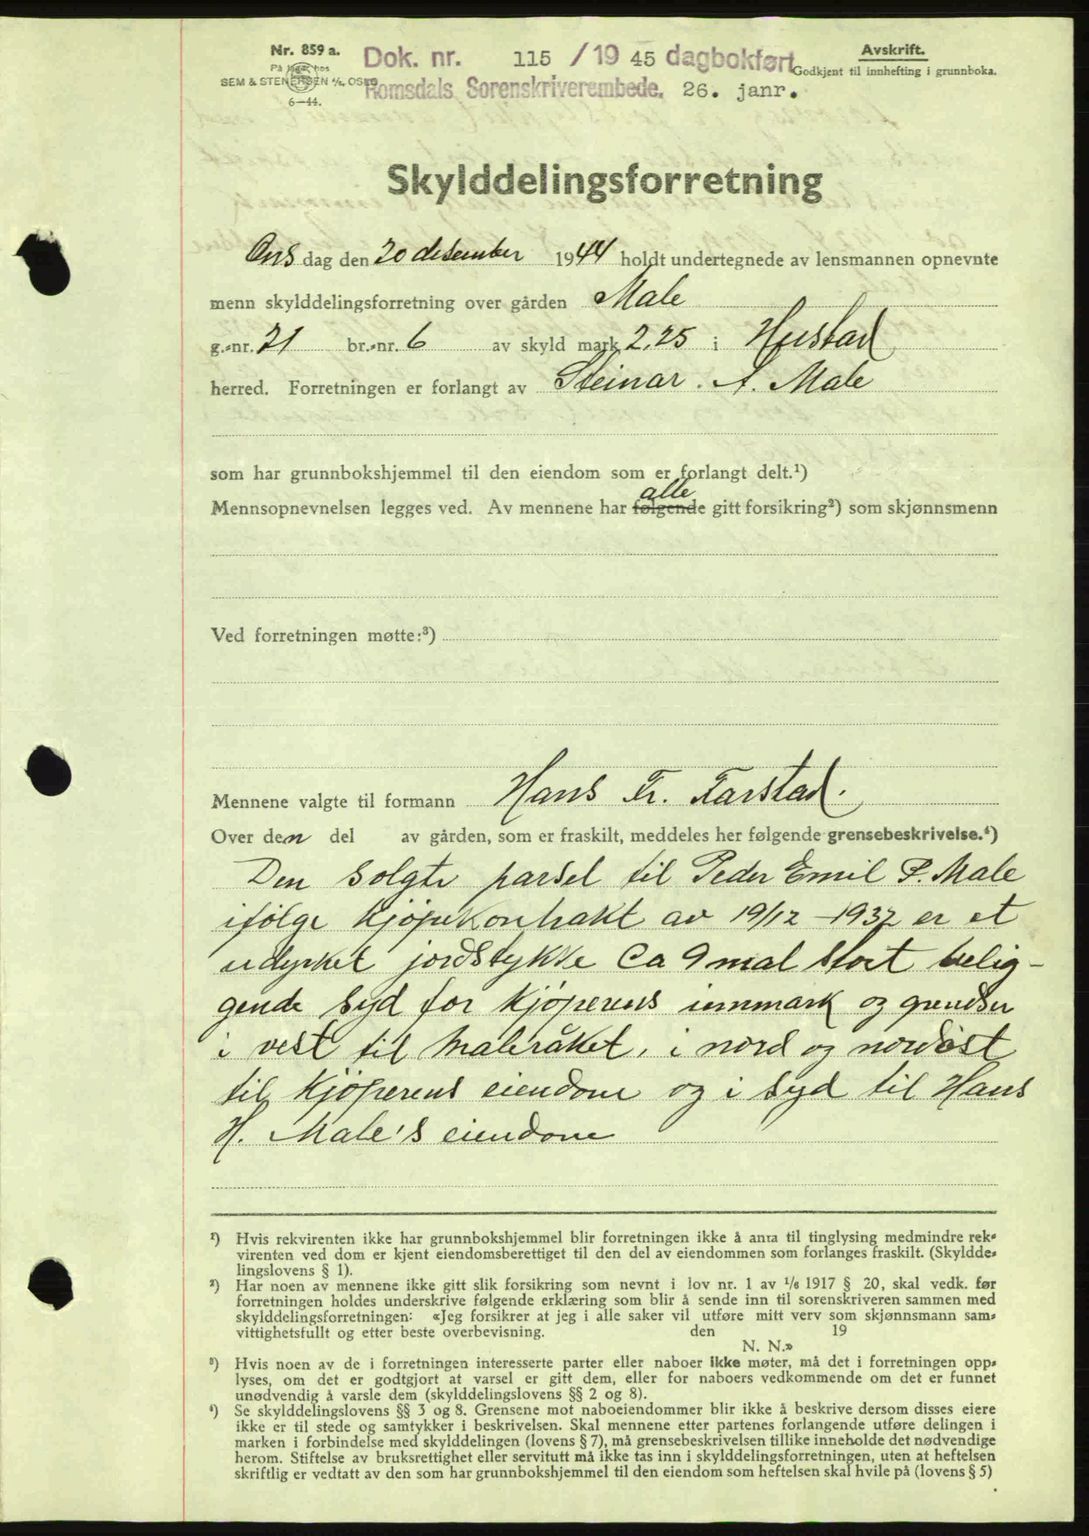 Nr. 859 a.
På lager hos
SEM & STENERSEN A/S, OSLO
6—44.
Dok. nr. 115 / 19 45 dagbokført
Romsdals Sorenskriverembede. 26. janr.
Avskrift.
Godkjent til innhefting i grunnboka.
Skylddelingsforretning
Ons dag den 20 desember 1944 holdt undertegnede av lensmannen opnevnte
menn skylddelingsforretning over gården Male
g.-nr. 21 br.-nr. 6 av skyld mark 2,25 i Hustad
herred. Forretningen er forlangt av Steinar. A. Male
som har grunnbokshjemmel til den eiendom som er forlangt delt.¹)
alle
Mennsopnevnelsen legges ved. Av mennene har følgende gitt forsikring²) som skjønnsmenn
Ved forretningen møtte:³)
Mennene valgte til formann Hans Fr. Farstad.
Over den del av gården, som er fraskilt, meddeles her følgende grensebeskrivelse.⁴)
Den solgte parsel til Peder Emil P. Male
ifölge kjöpekontrakt av 19/12 – 1932 er et
udyrket jordstykke Ca 9 mal stort belig-
gende syd for kjöperens innmark og grendser
i vest til Maleråket, i nord og nordöst
til kjöperens eiendom og i syd til Hans
H. Male's eiendom
¹) Hvis rekvirenten ikke har grunnbokshjemmel blir forretningen ikke å anta til tinglysing medmindre rek-
virenten ved dom er kjent eiendomsberettiget til den del av eiendommen som forlanges fraskilt. (Skyldde-
lingslovens § 1).
²) Har noen av mennene ikke gitt slik forsikring som nevnt i lov nr. 1 av 1/6 1917 § 20, skal vedk. før
forretningen holdes underskrive følgende erklæring som blir å sende inn til sorenskriveren sammen med
skylddelingsforretningen: «Jeg forsikrer at jeg i alle saker vil utføre mitt verv som skjønnsmann sam-
vittighetsfullt og etter beste overbevisning. den 19
N. N.»
³) Hvis noen av de i forretningen interesserte parter eller naboer ikke møter, må det i forretningen opp-
lyses, om det er godtgjort at varsel er gitt dem, eller for naboers vedkommende om det er funnet
unødvendig å varsle dem (skylddelingslovens §§ 2 og 8).
⁴) Se skylddelingslovens §§ 3 og 8. Grensene mot naboeiendommer blir ikke å beskrive dersom disses eiere
ikke er til stede og samtykker i beskrivelsen. Skal mennene etter partenes forlangende utføre delingen i
marken i forbindelse med skylddelingen (lovens § 7), må grensebeskrivelsen tillike inneholde det nødvendige
herom. Stiftelse av bruksrettighet eller servitutt må ikke tas inn i skylddelingsforretningen, uten at heftelsen
skriftlig er vedtatt av den som har grunnbokshjemmel til den eiendom som heftelsen skal hvile på (lovens § 5)